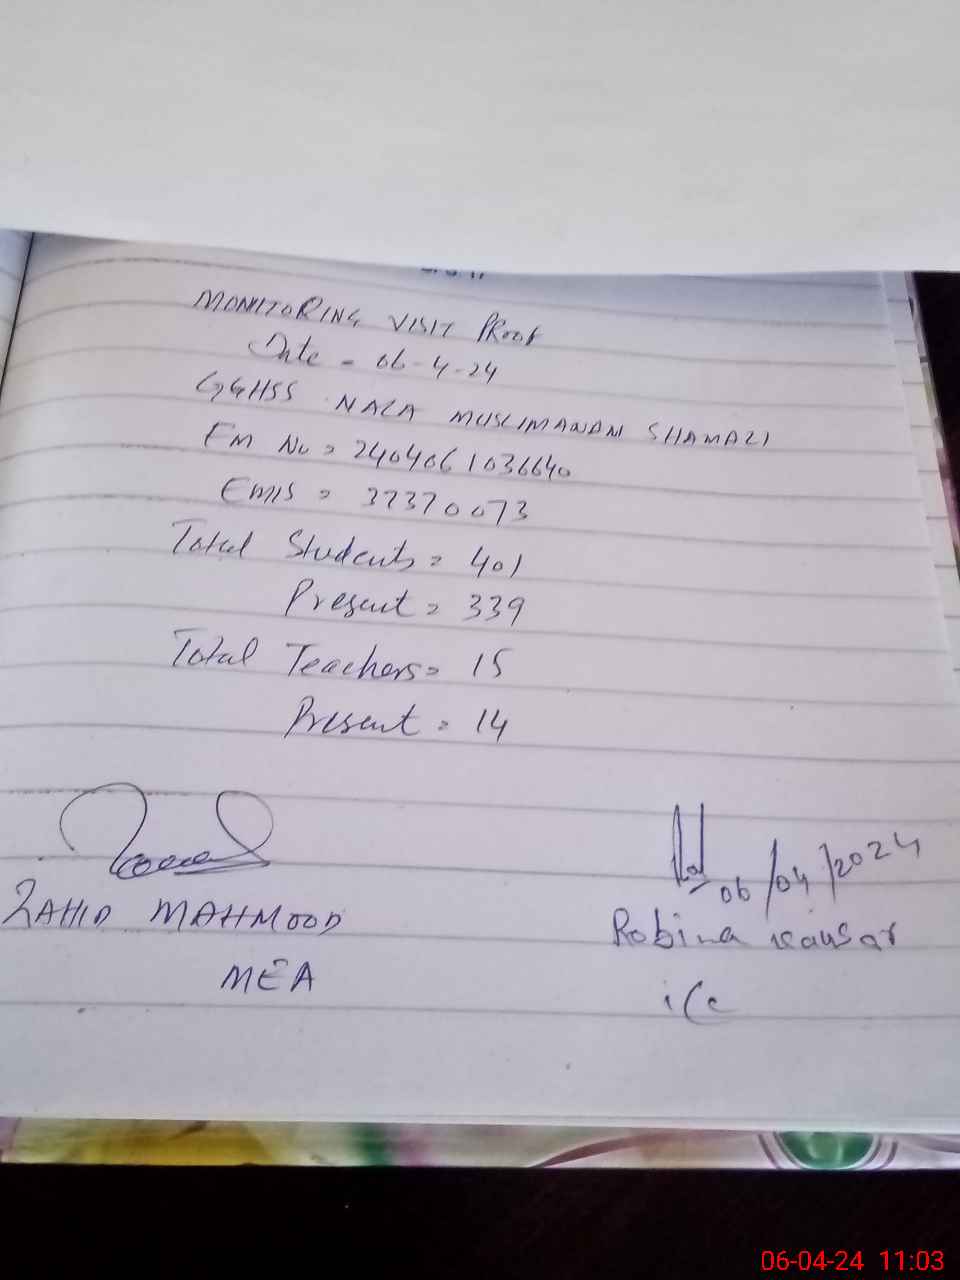 MONITORING VISIT PROOF
Date = 06-4-24
GGHSS NALA MUSLIMANAN SHAMALI
EM No = 2404061036640
EMIS = 37370073
Total Students = 401
Present = 339
Total Teachers = 15
Present = 14
06/04/2024
ZAHID MAHMOOD
Robina Kausar
MEA
i/c
06-04-24 11:03